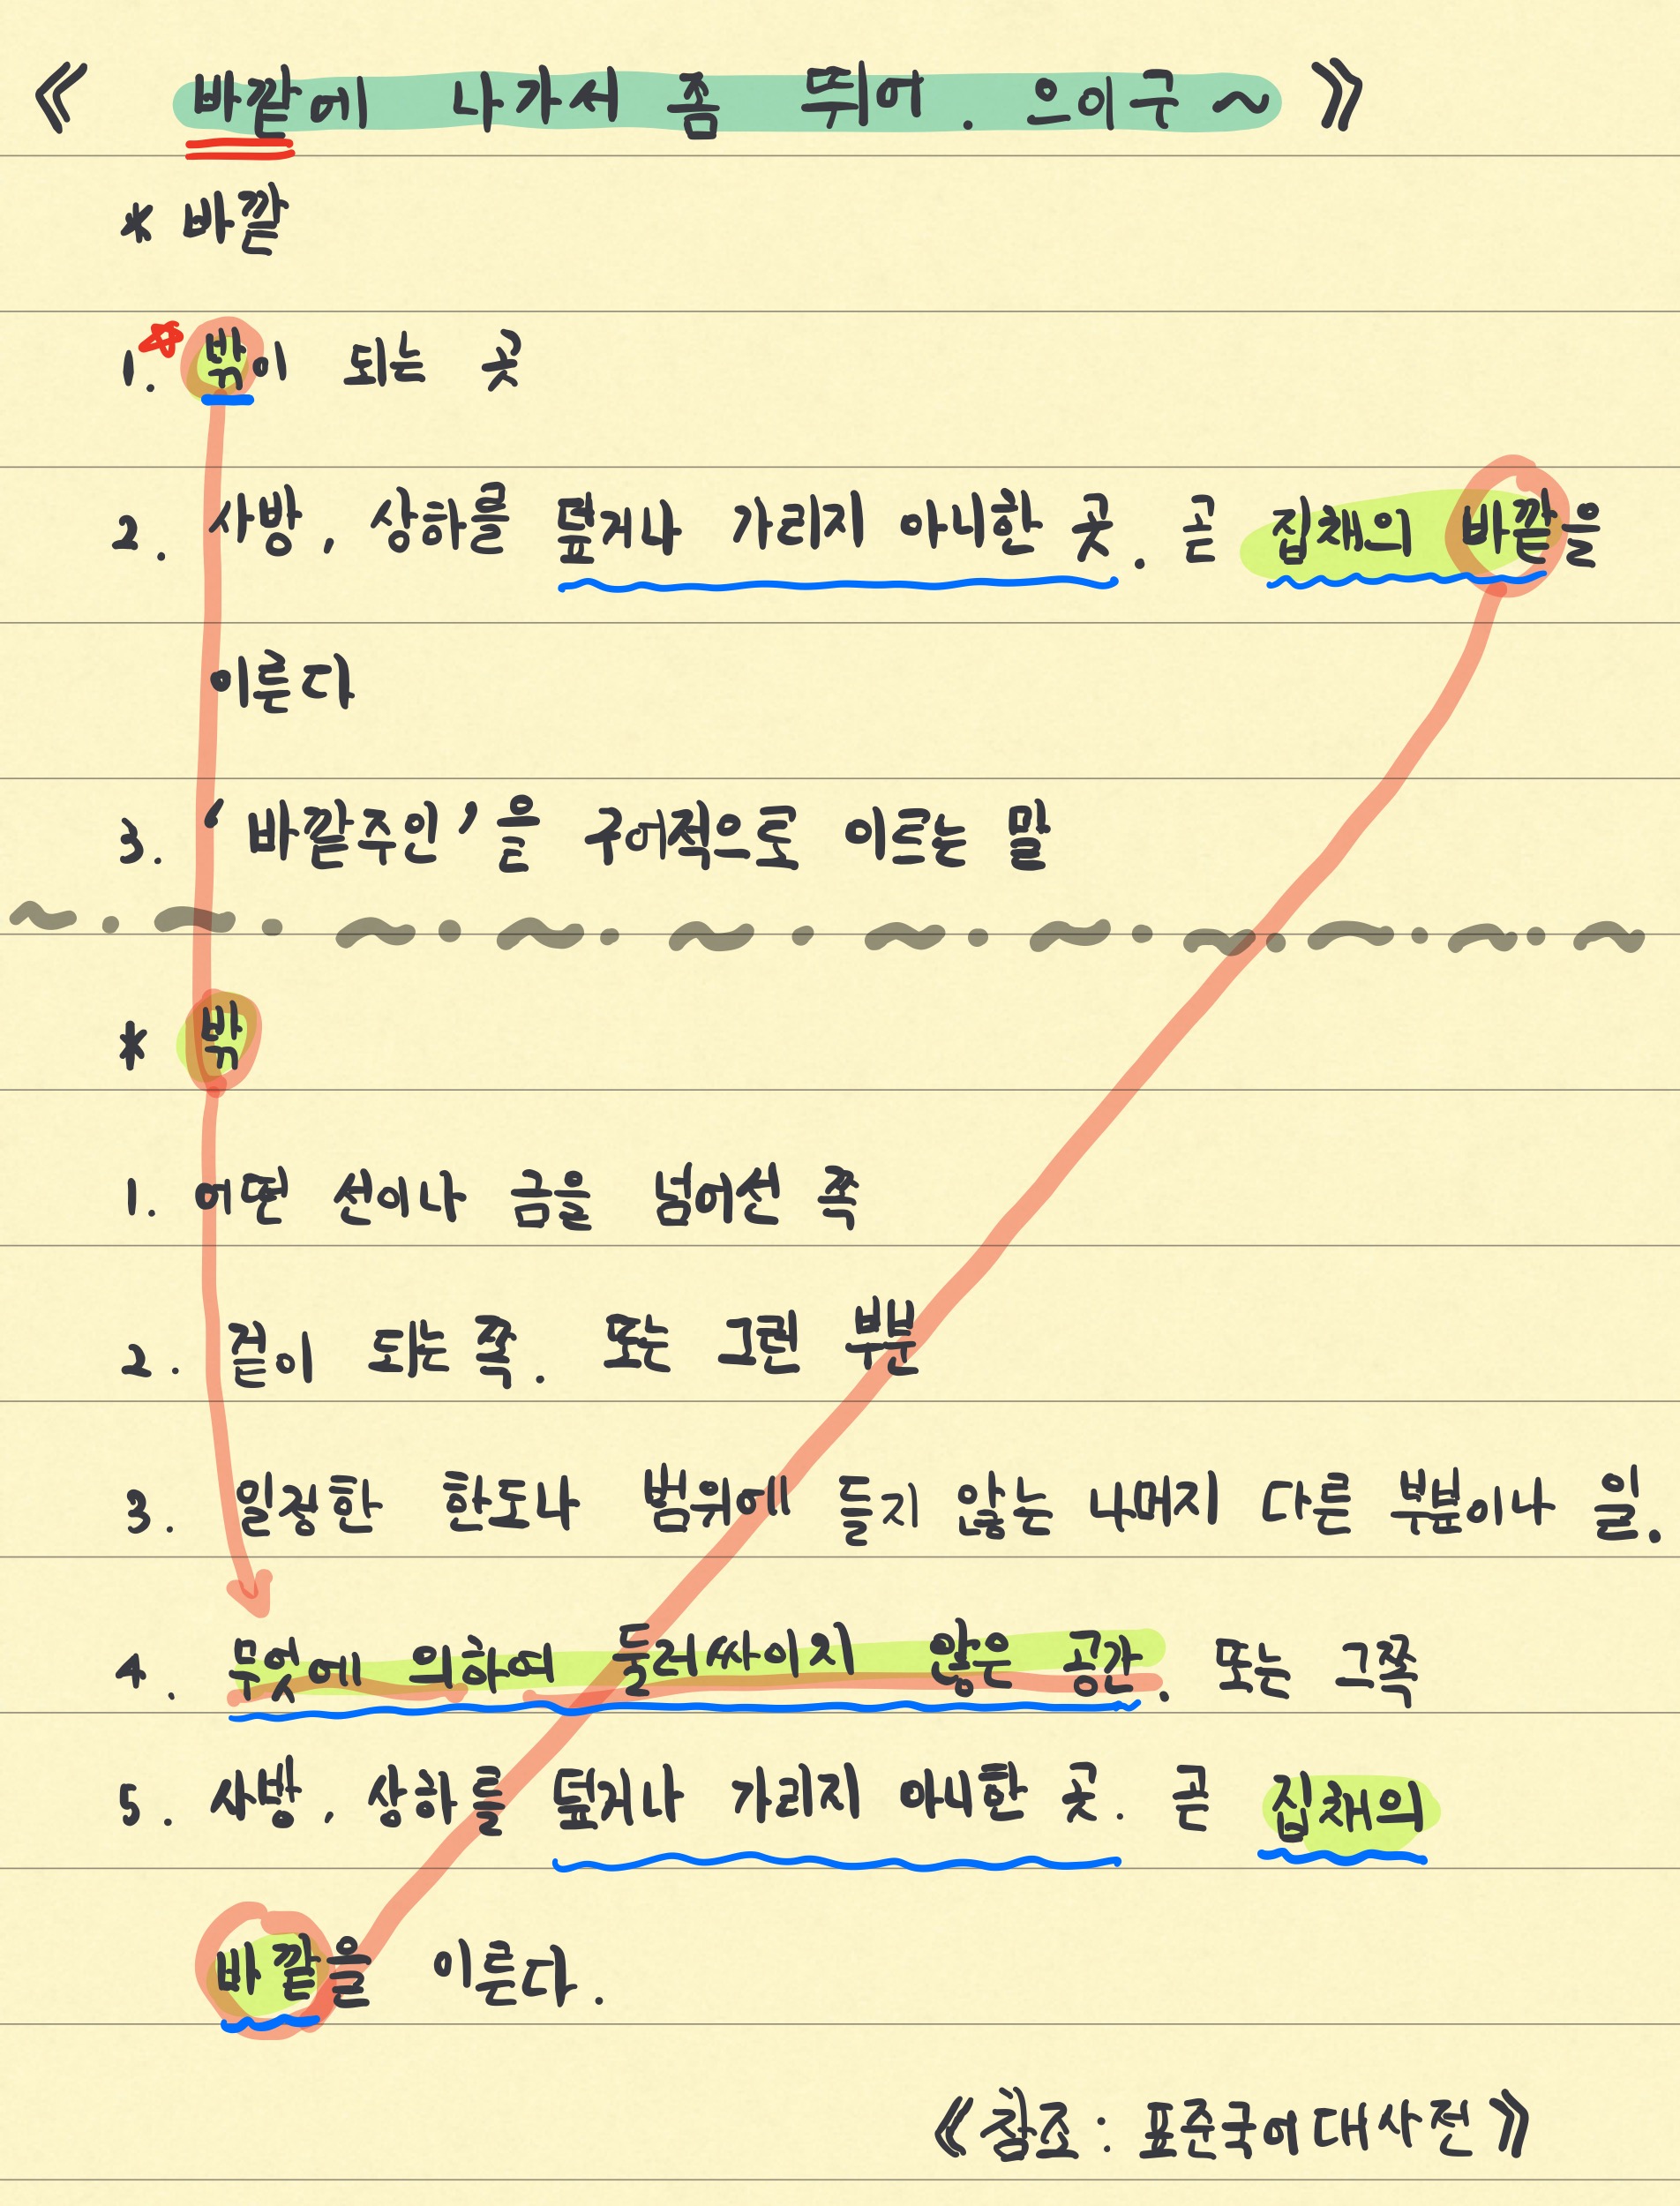 《 바깥에 나가서 좀 뛰어. 으이구~ 》
* 바깥
1. 밖이 되는 곳
2. 사방, 상하를 덮거나 가리지 아니한 곳. 곧 집채의 바깥을
이른다
3. ‘바깥주인’을 구어적으로 이르는 말
* 밖
1. 어떤 선이나 금을 넘어선 쪽
2. 겉이 되는 쪽. 또는 그런 부분
3. 일정한 한도나 범위에 들지 않는 나머지 다른 부분이나 일.
4. 무엇에 의하여 둘러싸이지 않은 공간. 또는 그쪽
5. 사방, 상하를 덮거나 가리지 아니한 곳. 곧 집채의
바깥을 이른다.
《참조: 표준국어대사전》